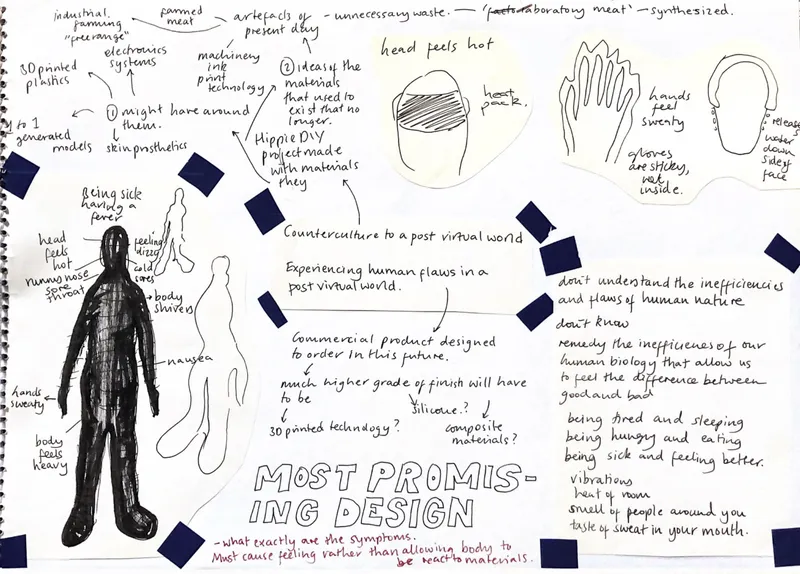 industrial
farming
"free range"
farmed
meat
artefacts of
present day
- unnecessary waste. —
'laboratory meat' — synthesized.
electronics
systems
3D printed
plastics
machinery
ink
print
technology
② ideas of the
materials
that used to
exist that no
longer.
① might have around
them.
to 1
generated
models
skin prosthetics
Hippie DIY
project made
with materials
they
head feels hot
heat
pack.
hands
feel
sweaty
gloves
are sticky,
wet
inside.
release
water
down
side of
face
Being sick
having a
fever
head
feels
hot
runny nose
sore
throat
feeling
dizzy
cold
sores
body
shivers
nausea
hands
sweaty
body
feels
heavy
Counterculture to a post virtual world
Experiencing human flaws in a
post virtual world.
Commercial product designed
to order in this future.
much higher grade of finish will have
to be
silicone.?
3D printed technology?
composite
materials?
MOST PROMIS-
ING DESIGN
- what exactly are the symptoms.
Must cause feeling rather than allowing body to
be react to materials.
don't understand the inefficiencies
and flaws of human nature
don't know
remedy the inefficienes of our
human biology that allow us
to feel the difference between
good and bad
being tired and sleeping
being hungry and eating
being sick and feeling better.
vibrations
heat of room
smell of people around you
taste of sweat in your mouth.